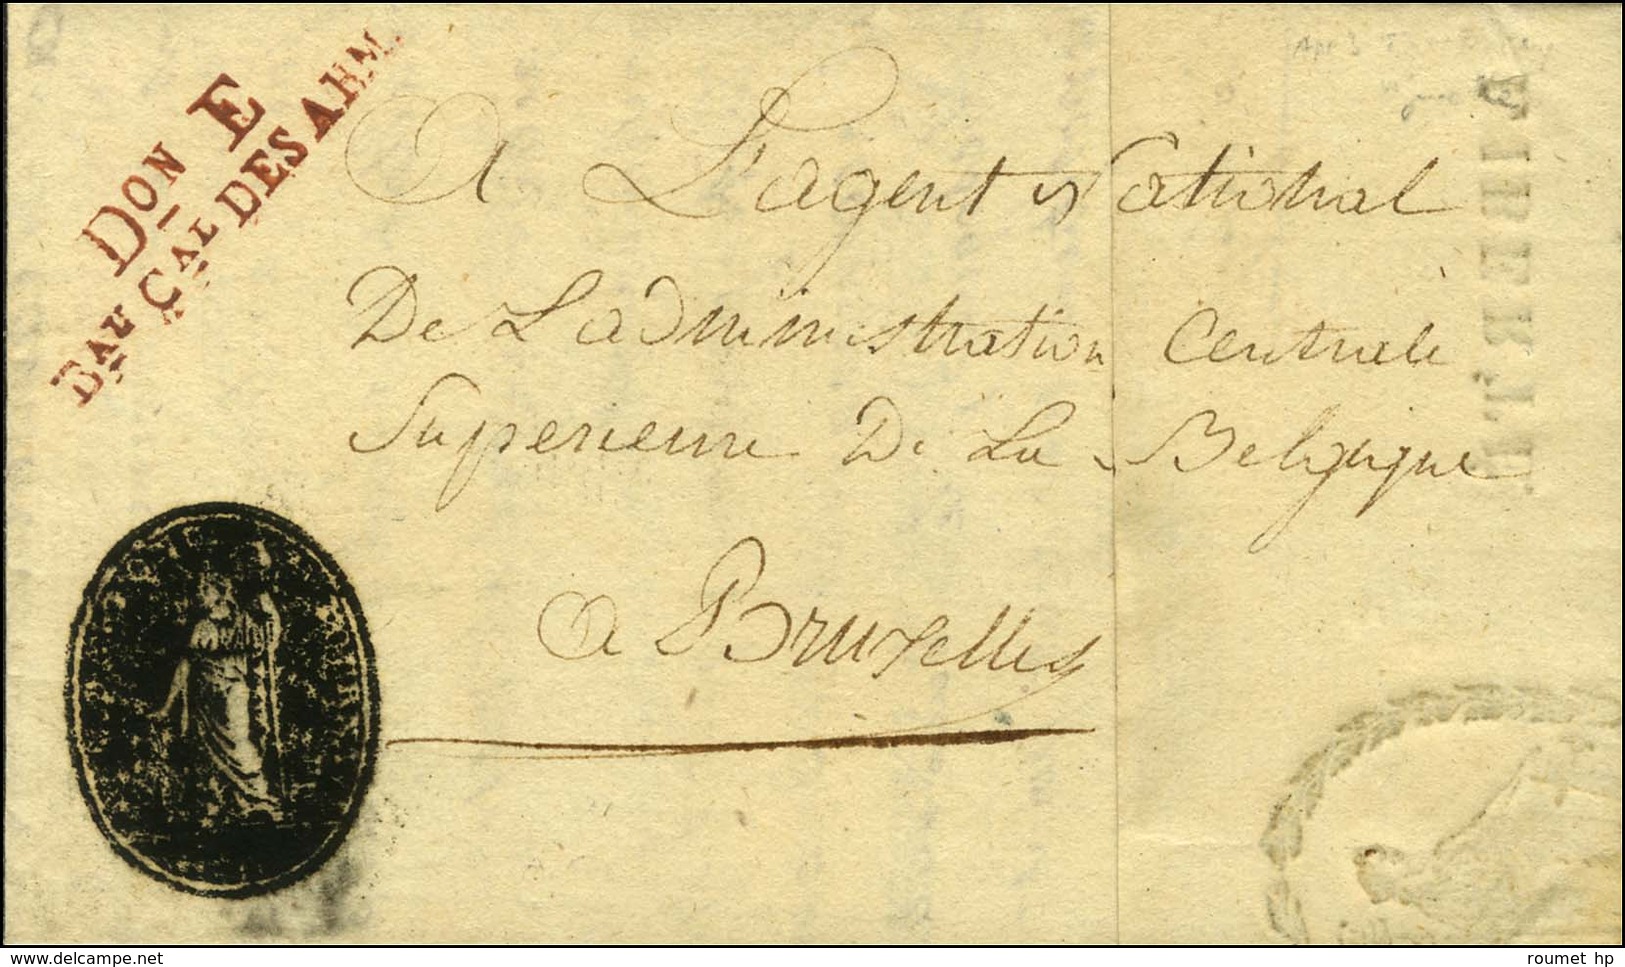 Don E
Bau Cal DES ARM.
A L'agent National
De L'administration Centrale
Superieure De La Belgique
a Bruxelles
LIBERTE
www.delcampe.net
roumet hp